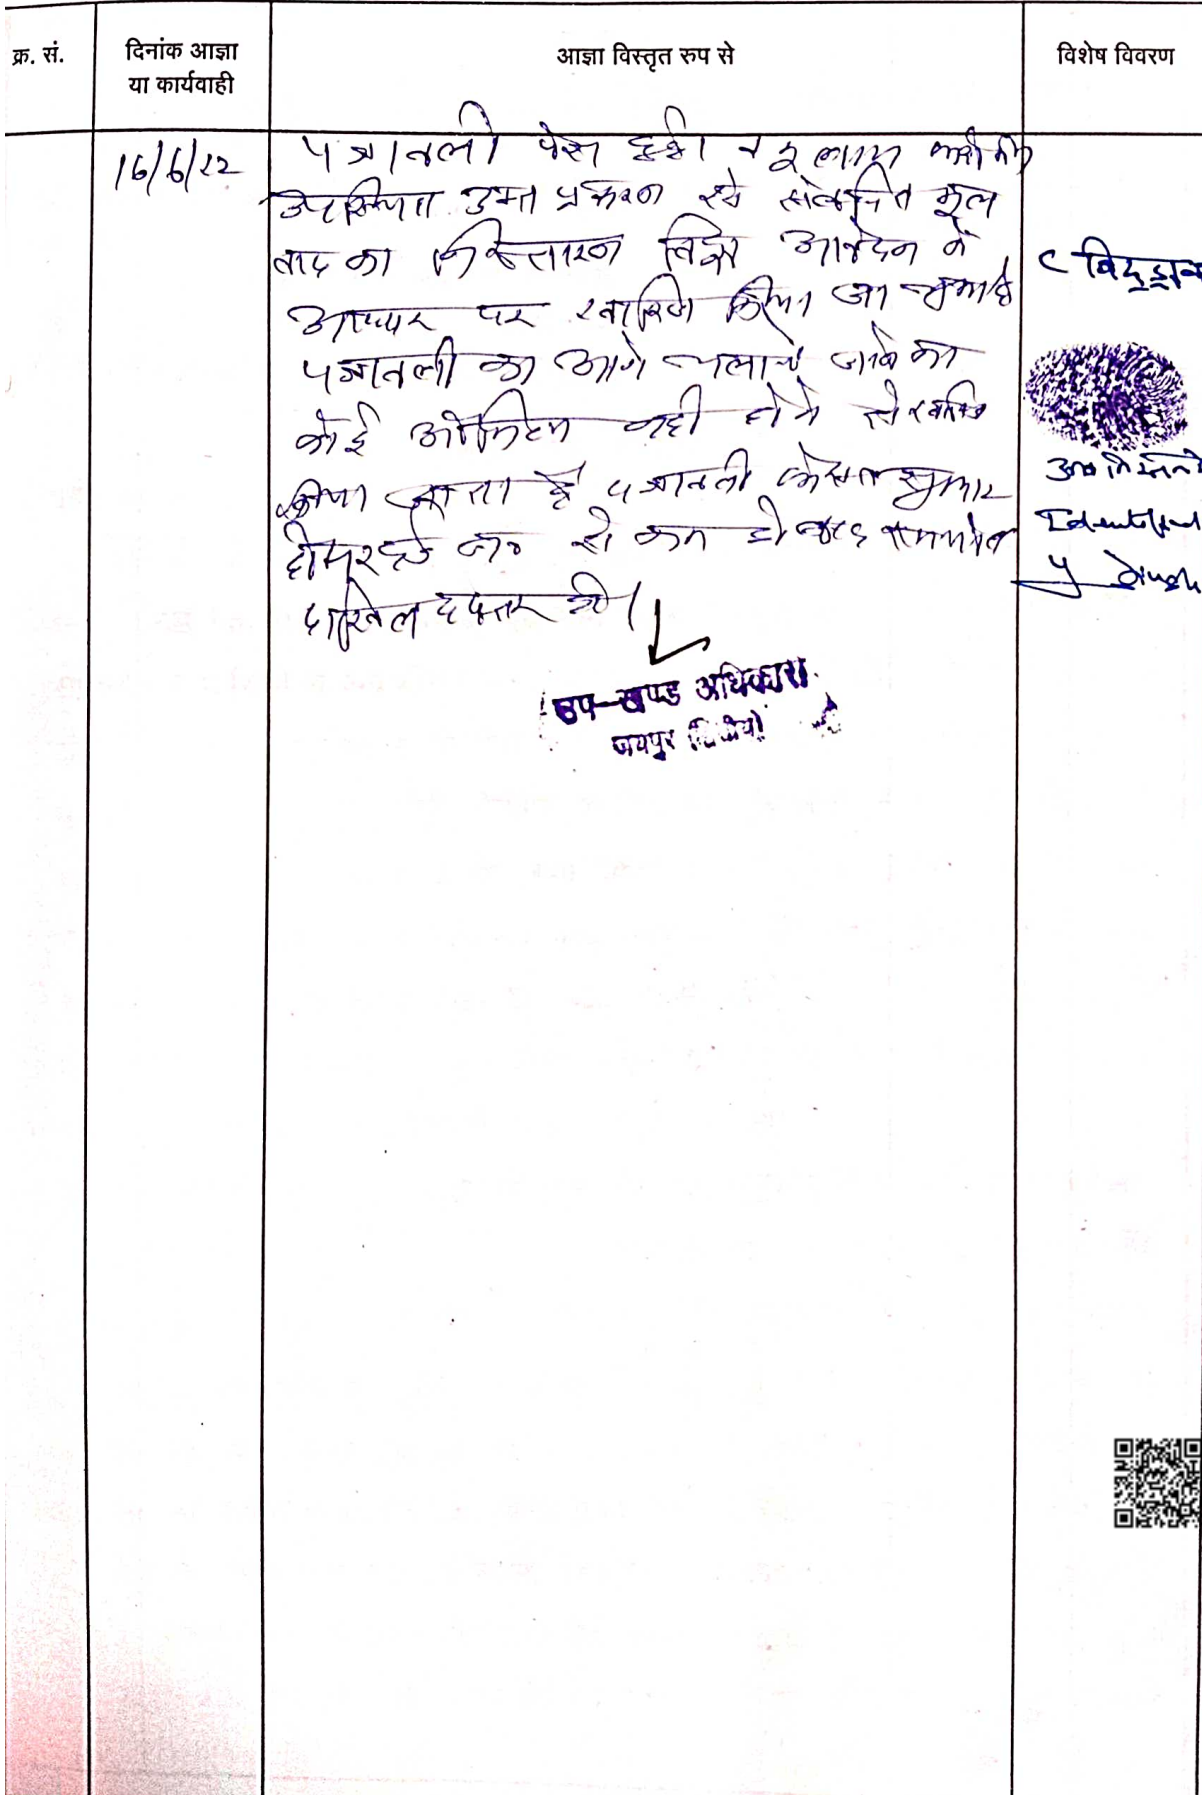 क्र. सं.
दिनांक आज्ञा
या कार्यवाही
आज्ञा विस्तृत रुप से
विशेष विवरण
16/6/22
पत्रावली पेश हुई। व
उपस्थित उक्त प्रकरण से संबंधित मूल
वाद का निस्तारण विड्रो आवेदन के
आधार पर खारिज किया जा चुका है
पत्रावली को आगे चलाये जाने का
कोई औचित्य नही होने से खारिज
किया जाता है पत्रावली फैसल शुमार
होकर दर्ज न० से कम हो बाद
दाखिल दफ्तर हो।
उप-खण्ड अधिकारी
जयपुर